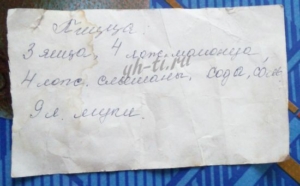 Пицца
3 яйца, 4 лож. майонеза
yh-ti.ru
4 лож. сметаны, сода, соль
9 л. муки.